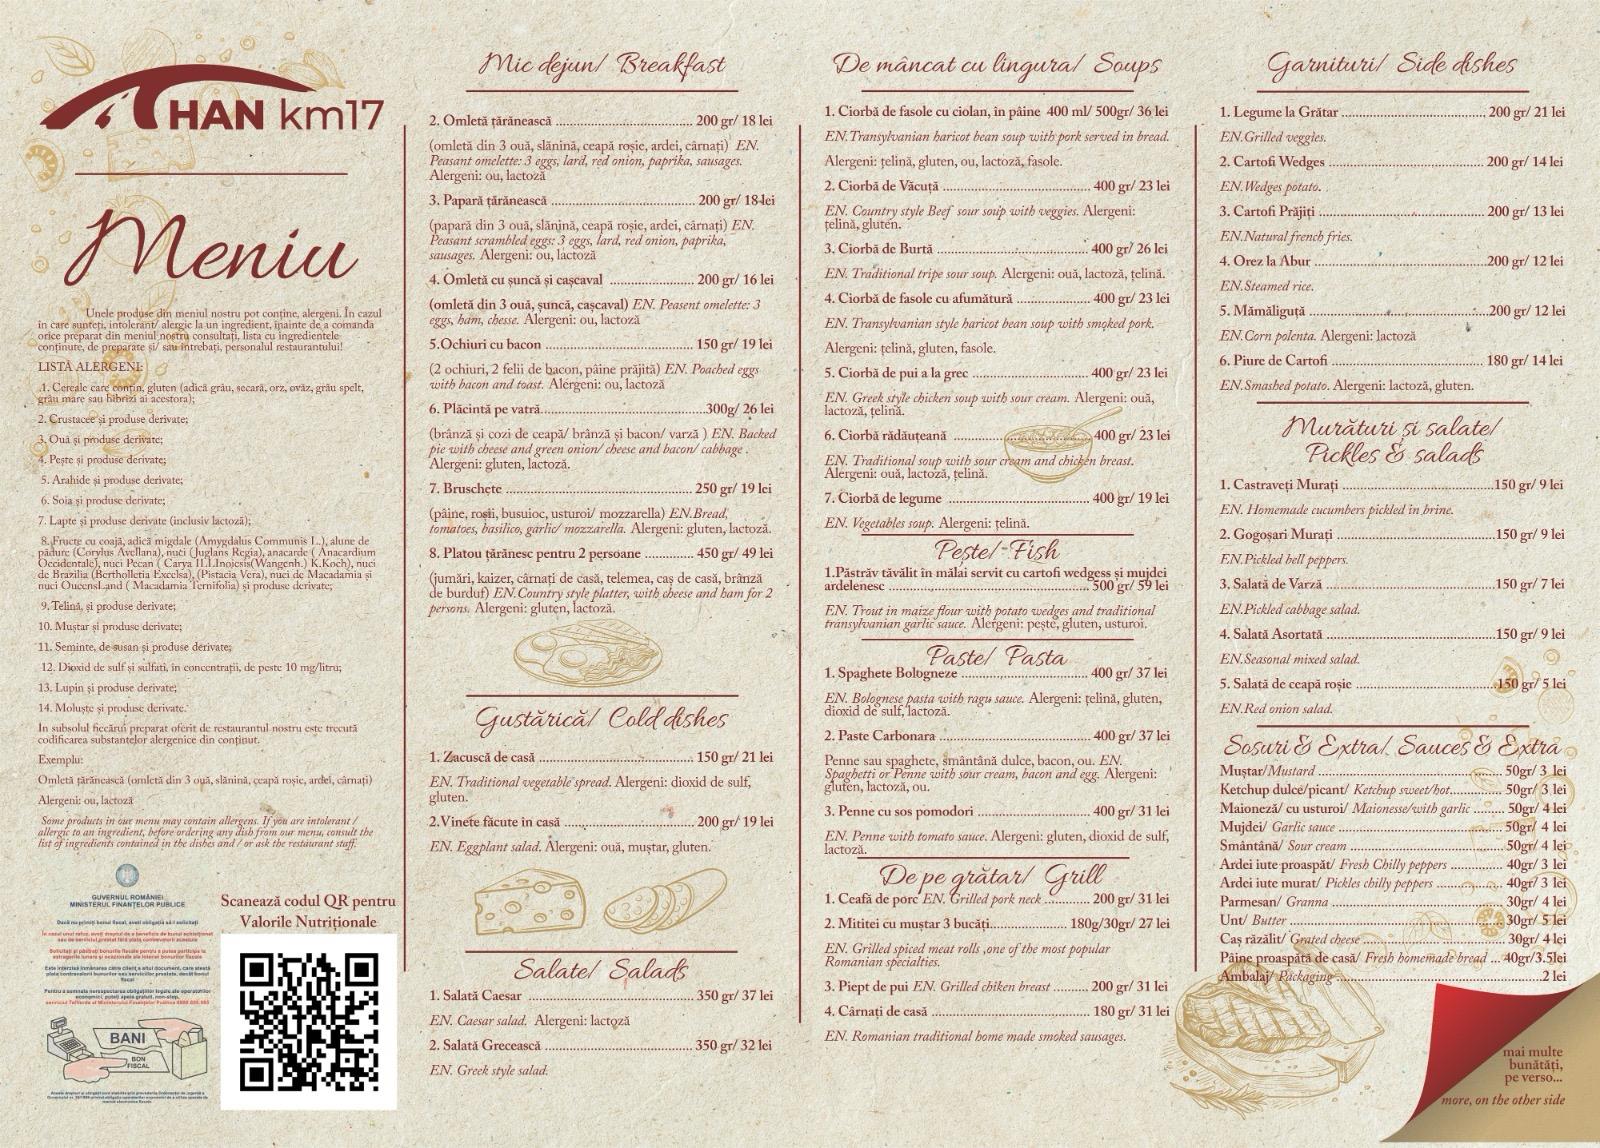 HAN km17
Meniu
Unele produse din meniul nostru pot conține, alergeni. În cazul
în care sunteți, intolerant/ alergic la un ingredient, înainte de a comanda
orice preparat din meniul nostru consultați, lista cu ingredientele
conținute, de preparate și/ sau întrebați, personalul restaurantului!
LISTĂ ALERGENI:
.1. Cereale care conțin, gluten (adică grâu, secară, orz, ovăz, grâu spelt,
grâu mare sau hibrizi ai acestora);
2. Crustacee și produse derivate;
3. Ouă și produse derivate;
4. Pește și produse derivate;
5. Arahide și produse derivate;
6. Soia și produse derivate;
7. Lapte și produse derivate (inclusiv lactoză);
8. Fructe cu coajă, adică migdale (Amygdalus Communis L.), alune de
pădure (Corylus Avellana), nuci (Juglans Regia), anacarde ( Anacardium
Occidentale), nuci Pecan ( Carya ILLInojcsis(Wangenh.) K.Koch), nuci
de Brazilia (Bertholletia Excelsa), (Pistacia Vera), nuci de Macadamia și
nuci QueensLand ( Macadamia Ternifolia) și produse derivate;
9. Telină, și produse derivate;
10. Muștar și produse derivate;
11. Seminte, de susan și produse derivate;
12. Dioxid de sulf și sulfați, în concentrații, de peste 10 mg/litru;
13. Lupin și produse derivate;
14. Moluște și produse derivate.
In subsolul fiecărui preparat oferit de restaurantul nostru este trecută
codificarea substanțelor alergenice din conținut.
Exemplu:
Omletă țărănească (omletă din 3 ouă, slănină, ceapă roșie, ardei, cârnați)
Alergeni: ou, lactoză
Some products in our menu may contain allergens. If you are intolerant /
allergic to an ingredient, before ordering any dish from our menu, consult the
list of ingredients contained in the dishes and / or ask the restaurant staff.
GUVERNUL ROMÂNIEI
MINISTERUL FINANȚELOR PUBLICE
Dacă nu primiți bonul fiscal, aveți obligația să-l solicitați
BANI
BON
FISCAL
Scanează codul QR pentru
Valorile Nutriționale
Mic dejun/ Breakfast
2. Omletă țărănească ..... 200 gr/ 18 lei
(omletă din 3 ouă, slănină, ceapă roșie, ardei, cârnați) EN.
Peasant omelette: 3 eggs, lard, red onion, paprika, sausages.
Alergeni: ou, lactoză
3. Papară țărănească ..... 200 gr/ 18 lei
(papară din 3 ouă, slănină, ceapă roșie, ardei, cârnați) EN.
Peasant scrambled eggs: 3 eggs, lard, red onion, paprika,
sausages. Alergeni: ou, lactoză
4. Omletă cu șuncă și cașcaval ..... 200 gr/ 16 lei
(omletă din 3 ouă, șuncă, cașcaval) EN. Peasent omelette: 3
eggs, ham, chesse. Alergeni: ou, lactoză
5.Ochiuri cu bacon ..... 150 gr/ 19 lei
(2 ochiuri, 2 felii de bacon, pâine prăjită) EN. Poached eggs
with bacon and toast. Alergeni: ou, lactoză
6. Plăcintă pe vatră.....300g/ 26 lei
(brânză și cozi de ceapă/ brânză și bacon/ varză ) EN. Backed
pie with cheese and green onion/ cheese and bacon/ cabbage .
Alergeni: gluten, lactoză.
7. Bruschete ..... 250 gr/ 19 lei
(pâine, roșii, busuioc, usturoi/ mozzarella) EN.Bread,
tomatoes, basilico, garlic/ mozzarella. Alergeni: gluten, lactoză.
8. Platou țărănesc pentru 2 persoane ..... 450 gr/ 49 lei
(jumări, kaizer, cârnați de casă, telemea, caș de casă, brânză
de burduf) EN.Country style platter, with cheese and ham for 2
persons. Alergeni: gluten, lactoză.
Gustărică/ Cold dishes
1. Zacuscă de casă ..... 150 gr/ 21 lei
EN. Traditional vegetable spread. Alergeni: dioxid de sulf,
gluten.
2.Vinete făcute in casă ..... 200 gr/ 19 lei
EN. Eggplant salad. Alergeni: ouă, muștar, gluten.
Salate/ Salads
1. Salată Caesar ..... 350 gr/ 37 lei
EN. Caesar salad. Alergeni: lactoză
2. Salată Grecească ..... 350 gr/ 32 lei
EN. Greek style salad.
De mâncat cu lingura/ Soups
1. Ciorbă de fasole cu ciolan, în pâine 400 ml/ 500gr/ 36 lei
EN.Transylvanian haricot bean soup with pork served in bread.
Alergeni: țelină, gluten, ou, lactoză, fasole.
2. Ciorbă de Văcuță ..... 400 gr/ 23 lei
EN. Country style Beef sour soup with veggies. Alergeni:
țelină, gluten.
3. Ciorbă de Burtă ..... 400 gr/ 26 lei
EN. Traditional tripe sour soup. Alergeni: ouă, lactoză, țelină.
4. Ciorbă de fasole cu afumătură ..... 400 gr/ 23 lei
EN. Transylvanian style haricot bean soup with smoked pork.
Alergeni: țelină, gluten, fasole.
5. Ciorbă de pui a la grec ..... 400 gr/ 23 lei
EN. Greek style chicken soup with sour cream. Alergeni: ouă,
lactoză, țelină.
6. Ciorbă rădăuțeană ..... 400 gr/ 23 lei
EN. Traditional soup with sour cream and chicken breast.
Alergeni: ouă, lactoză, țelină.
7. Ciorbă de legume ..... 400 gr/ 19 lei
EN. Vegetables soup. Alergeni: țelină.
Pește/ Fish
1.Păstrăv tăvălit în mălai servit cu cartofi wedgess și mujdei
ardelenesc ..... 500 gr/ 59 lei
EN. Trout in maize flour with potato wedges and traditional
transylvanian garlic sauce. Alergeni: pește, gluten, usturoi.
Paste/ Pasta
1. Spaghete Bologneze ..... 400 gr/ 37 lei
EN. Bolognese pasta with ragu sauce. Alergeni: țelină, gluten,
dioxid de sulf, lactoză.
2. Paste Carbonara ..... 400 gr/ 37 lei
Penne sau spaghete, smântână dulce, bacon, ou. EN.
Spaghetti or Penne with sour cream, bacon and egg. Alergeni:
gluten, lactoză, ou.
3. Penne cu sos pomodori ..... 400 gr/ 31 lei
EN. Penne with tomato sauce. Alergeni: gluten, dioxid de sulf,
lactoză.
De pe grătar/ Grill
1. Ceafă de porc EN. Grilled pork neck ..... 200 gr/ 31 lei
2. Mititei cu muștar 3 bucăți..... 180g/30gr/ 27 lei
EN. Grilled spiced meat rolls ,one of the most popular
Romanian specialties.
3. Piept de pui EN. Grilled chiken breast ..... 200 gr/ 31 lei
4. Cârnați de casă ..... 180 gr/ 31 lei
EN. Romanian traditional home made smoked sausages.
Garnituri/ Side dishes
1. Legume la Grătar ..... 200 gr/ 21 lei
EN.Grilled veggies.
2. Cartofi Wedges ..... 200 gr/ 14 lei
EN.Wedges potato.
3. Cartofi Prăjiți ..... 200 gr/ 13 lei
EN.Natural french fries.
4. Orez la Abur .....200 gr/ 12 lei
EN.Steamed rice.
5. Mămăliguță .....200 gr/ 12 lei
EN.Corn polenta. Alergeni: lactoză
6. Piure de Cartofi ..... 180 gr/ 14 lei
EN.Smashed potato. Alergeni: lactoză, gluten.
Murături și salate/
Pickles & salads
1. Castraveți Murați .....150 gr/ 9 lei
EN. Homemade cucumbers pickled in brine.
2. Gogoșari Murați .....150 gr/ 9 lei
EN.Pickled bell peppers.
3. Salată de Varză .....150 gr/ 7 lei
EN.Pickled cabbage salad.
4. Salată Asortată .....150 gr/ 9 lei
EN.Seasonal mixed salad.
5. Salată de ceapă roșie .....150 gr/ 5 lei
EN.Red onion salad.
Sosuri & Extra/. Sauces & Extra
Muștar/Mustard ..... 50gr/ 3 lei
Ketchup dulce/picant/ Ketchup sweet/hot..... 50gr/ 3 lei
Maioneză/ cu usturoi/ Maionesse/with garlic ..... 50gr/ 4 lei
Mujdei/ Garlic sauce ..... 50gr/ 4 lei
Smântână/ Sour cream ..... 50gr/ 4 lei
Ardei iute proaspăt/ Fresh Chilly peppers ..... 40gr/ 3 lei
Ardei iute murat/ Pickles chilly peppers ..... 40gr/ 3 lei
Parmesan/ Granna ..... 30gr/ 4 lei
Unt/ Butter ..... 30gr/ 5 lei
Caș răzălit/ Grated cheese ..... 30gr/ 4 lei
Pâine proaspătă de casă/ Fresh homemade bread ... 40gr/3.5lei
Ambalaj/ Packaging .....2 lei
mai multe
bunătăți,
pe verso...
more, on the other side